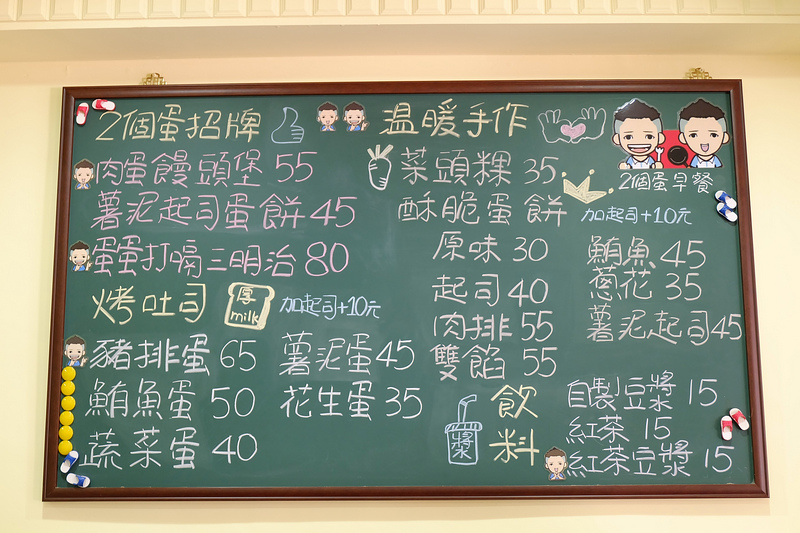 2個蛋招牌
肉蛋饅頭堡 55
薯泥起司蛋餅 45
蛋蛋打嗝三明治 80
烤吐司
厚
milk
加起司+10元
豬排蛋 65
薯泥蛋 45
鮪魚蛋 50
花生蛋 35
蔬菜蛋 40
溫暖手作
菜頭粿 35
酥脆蛋餅
加起司+10元
原味 30
鮪魚 45
起司 40
蔥花 35
肉排 55
薯泥起司 45
雙餡 55
飲料
漿
自製豆漿 15
紅茶 15
紅茶豆漿 15
2個蛋早餐